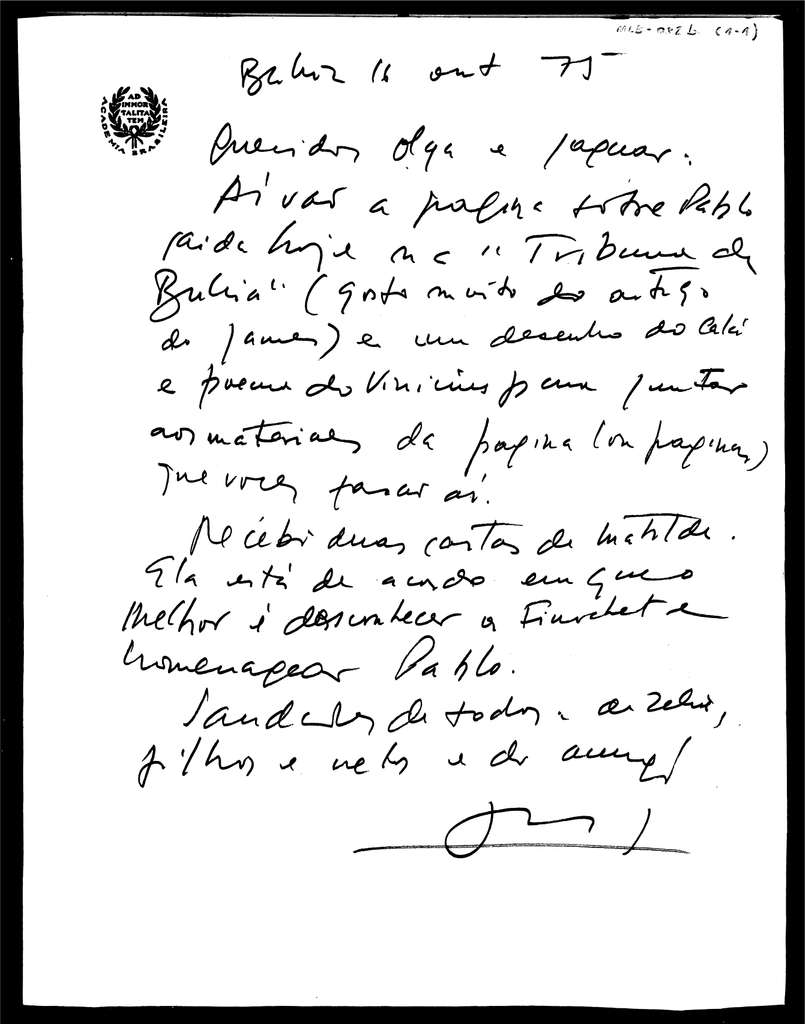 (1-1)
Bahia 16 out 75
ACADEMIA BRASILEIRA
AD
IMMOR
TALITA
TEM
Queridos Olga e Jaguar:
Aí vai a pagina sobre Pablo
saida hoje na "Tribuna da
Bahia" (gosto muito do artigo
do James) e um desenho do Calá
e poema do Vinicius para juntar
aos materiaes da pagina (ou paginas)
que voces farar aí.
Recebi duas cartas de Matilde.
Ela está de acordo em que o
melhor é desconhecer a Finochet e
homenagear Pablo.
Saudades de todos, de Zelia,
filhos e netos e do amigo